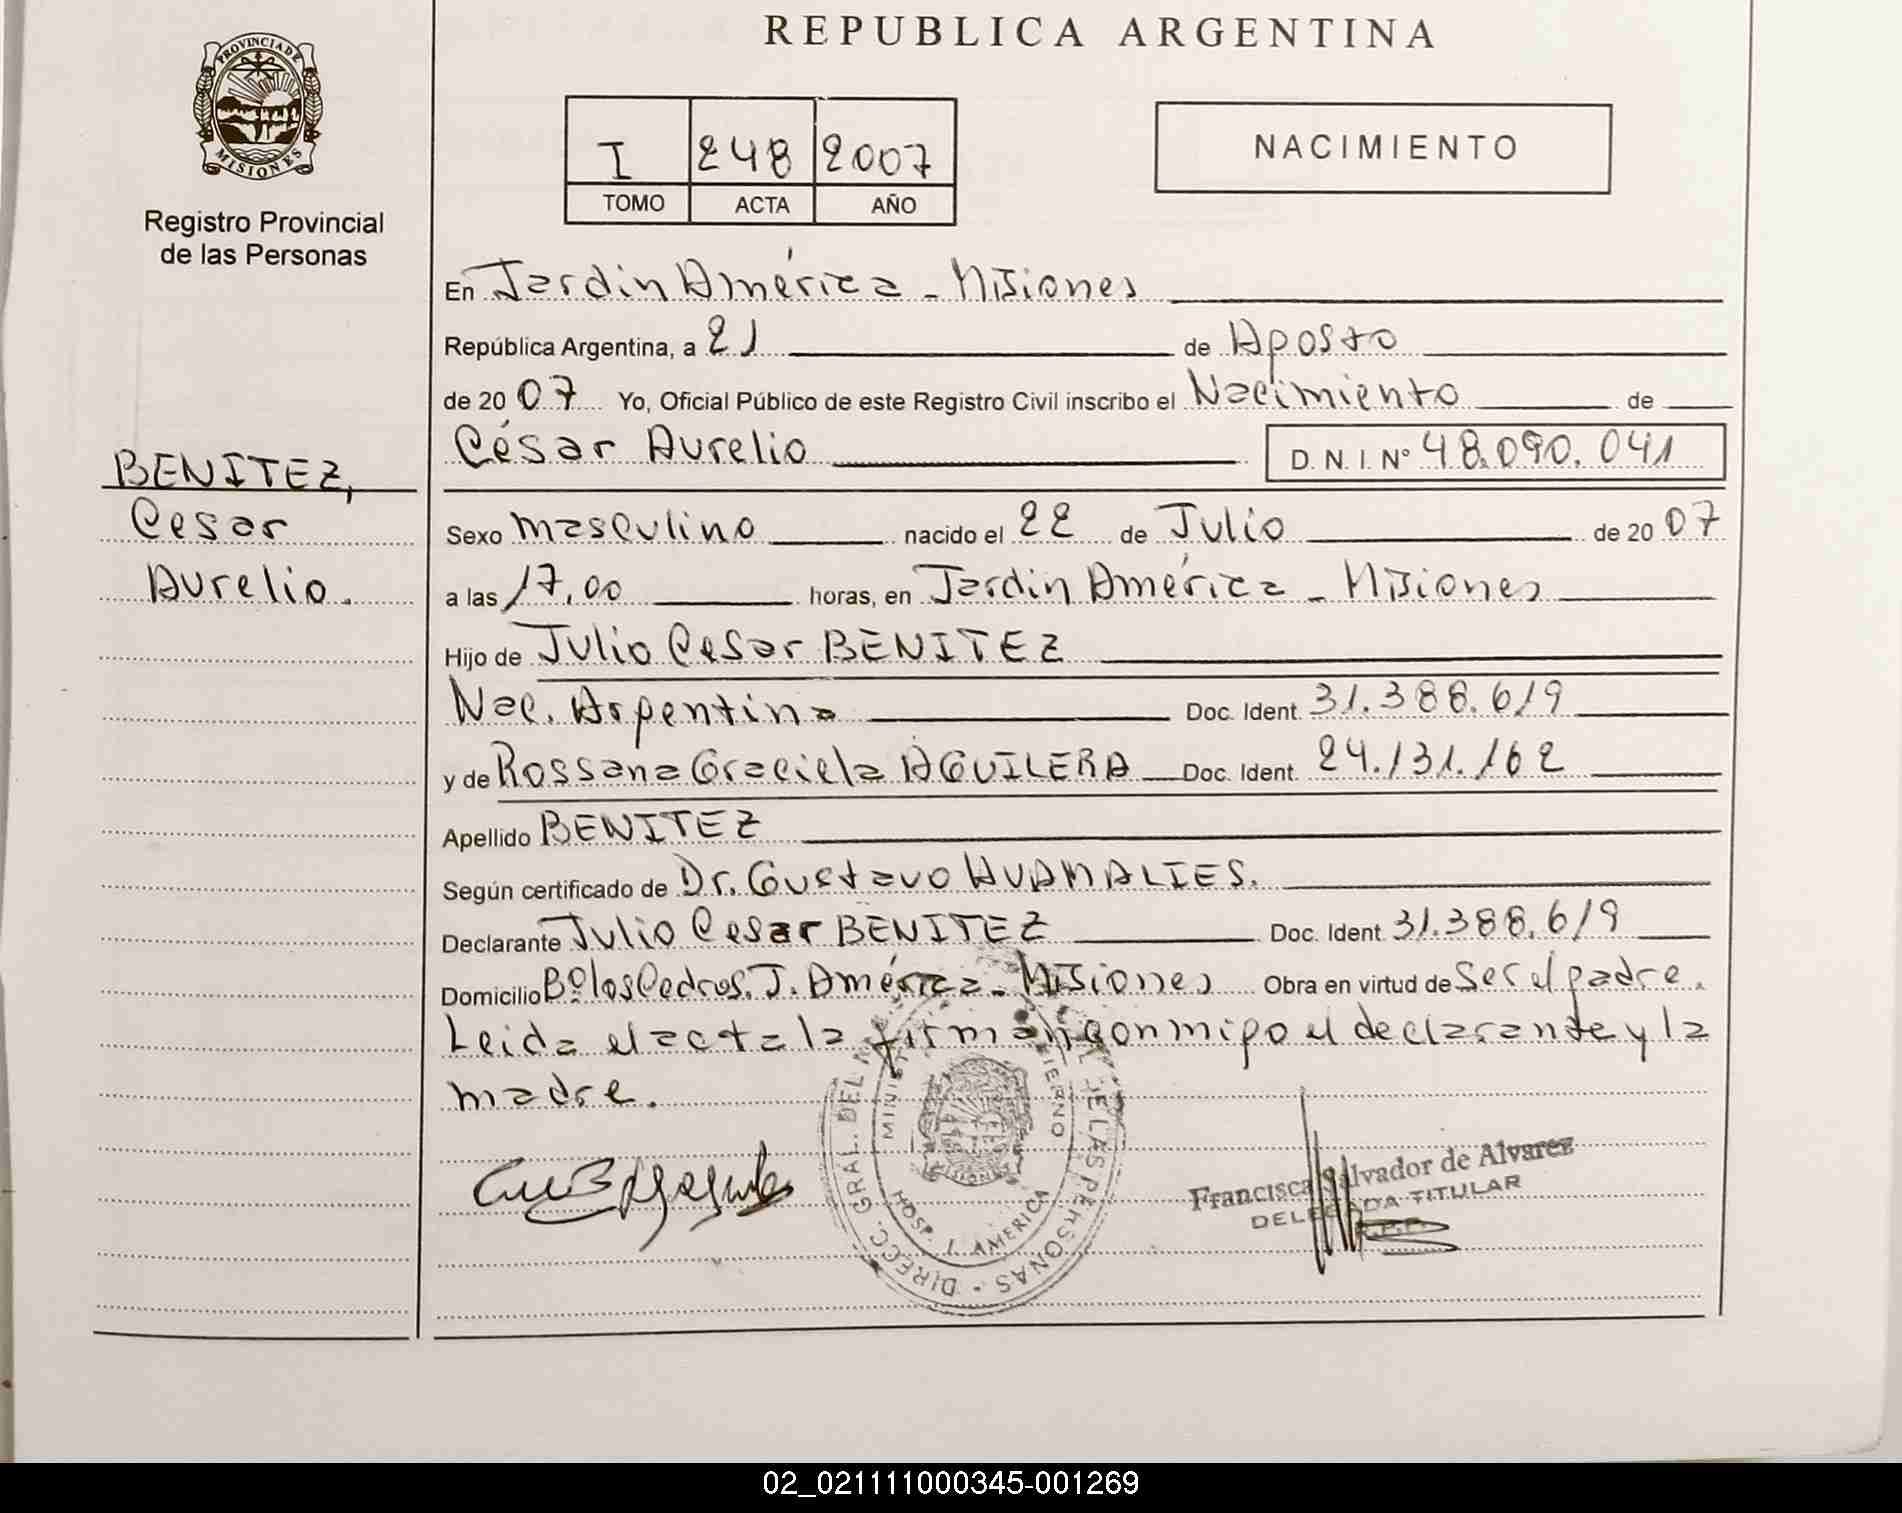 REPUBLICA ARGENTINA
PROVINCIA DE
MISIONES
Registro Provincial
de las Personas
I 248 2007
TOMO ACTA AÑO
NACIMIENTO
BENITEZ,
Cesar
Aurelio.
En Jardin América - Misiones
República Argentina, a 21 de Agosto
de 2007 Yo, Oficial Público de este Registro Civil inscribo el Nacimiento de
César Aurelio D. N. I. Nº 48.090.041
Sexo masculino nacido el 22 de Julio de 2007
a las 17,00 horas, en Jardin América - Misiones
Hijo de Julio Cesar BENITEZ
Nac. Argentina Doc. Ident. 31.388.619
y de Rossana Graciela AGUILERA Doc. Ident. 24.131.162
Apellido BENITEZ
Según certificado de Dr. Gustavo HUAMALIES.
Declarante Julio Cesar BENITEZ Doc. Ident. 31.388.619
Domicilio Bº los Cedros. J. América - Misiones Obra en virtud de Ser el padre.
Leida el acta la firman conmigo el declarante y la
madre.
DIRECC. GRAL. DEL DE LAS PERSONAS
HOSP. J. AMERICA
Francisca Salvador de Alvarez
DELEGADA TITULAR
R.P.P.
02_021111000345-001269